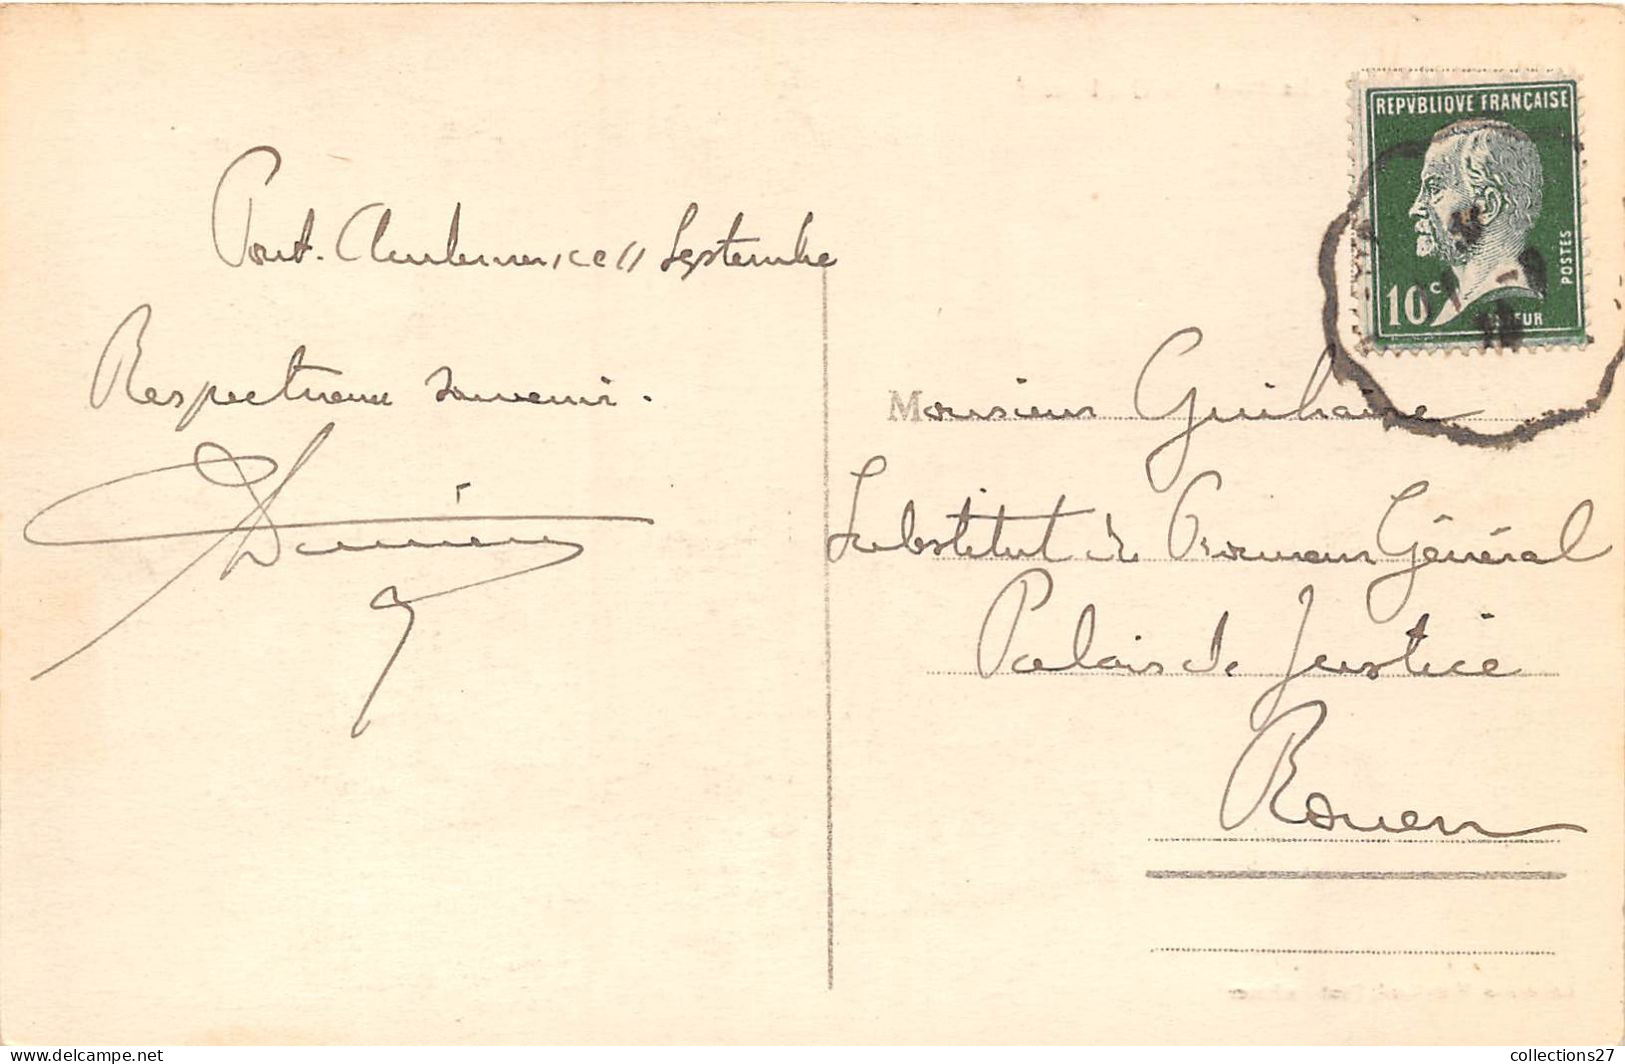 Pont-Audemer, ce 11 Septembre
Respectueux souvenir.
REPVBLIQVE FRANÇAISE
POSTES
10 c
Monsieur Guihaire
Substitut du Procureur Général
Palais de Justice
Rouen
collections27